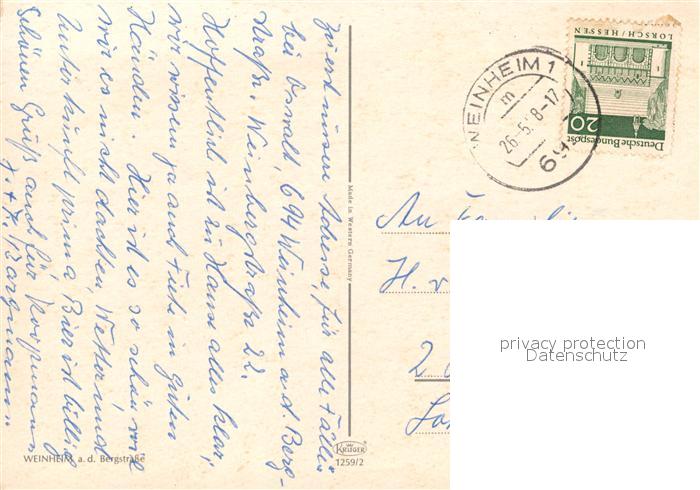 Zuerst unsere Adresse, für alle Fälle:
bei Oswald, 694 Weinheim a. d. Berg-
straße, Weinbergstraße 22.
Hoffentlich ist zu Hause alles klar,
wir wissen ja auch Tiere in guten
Händen. Hier ist es so schön wie
wir es nicht dachten, Wetter und
Unterkunft prima, Bier ist billig
Schönen Gruß auch für Koopmann
WEINHEIM a. d. Bergstraße
Made in Western Germany
KRÜGER
1259/2
WEINHEIM 1
m
26.-5. 8-17
694
LORSCH/HESSEN
20
Deutsche Bundespost
An
H. v
2
privacy protection
Datenschutz